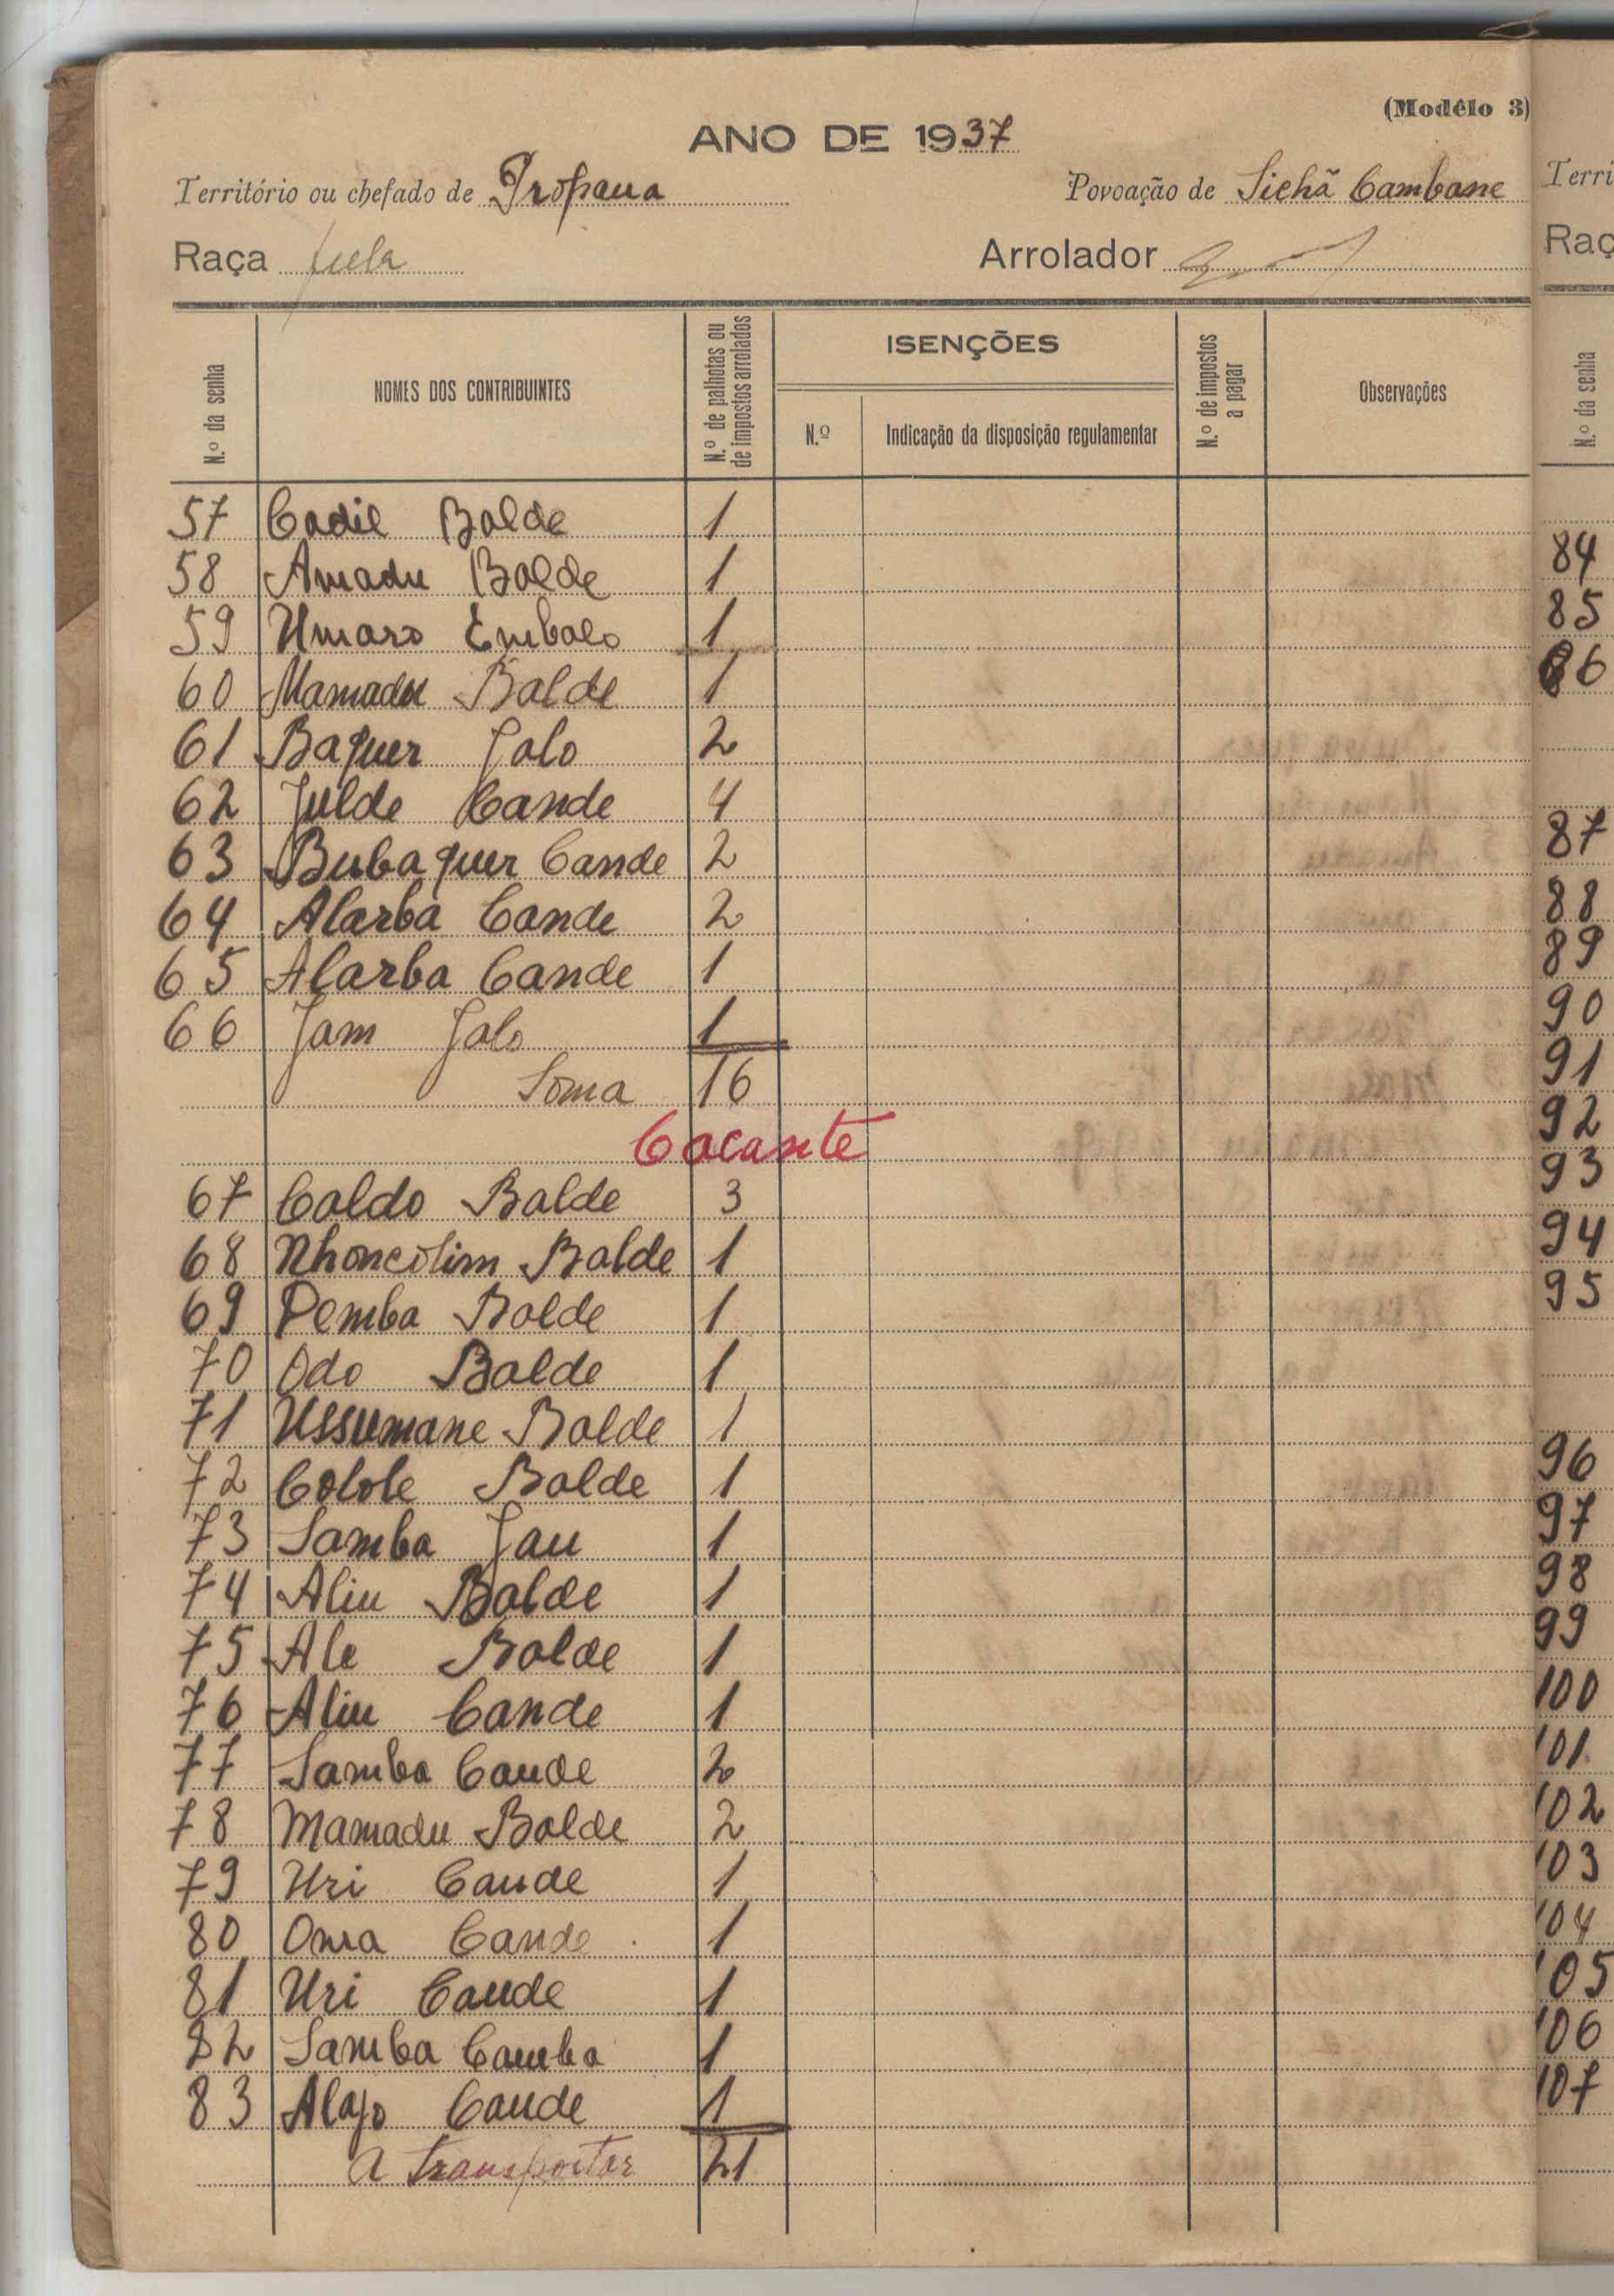 (Modêlo 3)
ANO DE 1937
Território ou chefado de Propana Povoação de Sichã Cambane
Raça fula Arrolador
N.º da senha NOMES DOS CONTRIBUINTES N.º de palhotas ou de impostos arrolados ISENÇÕES N.º Indicação da disposição regulamentar N.º de impostos a pagar Observações
57 Cadil Balde 1
58 Amadu Balde 1
59 Umaro Embalo 1
60 Mamadu Balde 1
61 Baquer Jalo 2
62 Julde Cande 4
63 Bubaquer Cande 2
64 Alarba Cande 2
65 Alarba Cande 1
66 Jam Jalo 1
Soma 16
Cacante
67 Caldo Balde 3
68 Nhoncolim Balde 1
69 Demba Balde 1
70 Odo Balde 1
71 Ussumane Balde 1
72 Colole Balde 1
73 Samba Jau 1
74 Aliu Balde 1
75 Ale Balde 1
76 Aliu Cande 1
77 Samba Cande 2
78 Mamadu Balde 2
79 Uri Cande 1
80 Oma Cande 1
81 Uri Cande 1
82 Samba Camba 1
83 Alajo Cande 1
A transportar 21
Terri
Raç
N.º da senha
84
85
86
87
88
89
90
91
92
93
94
95
96
97
98
99
100
101
102
103
104
105
106
107